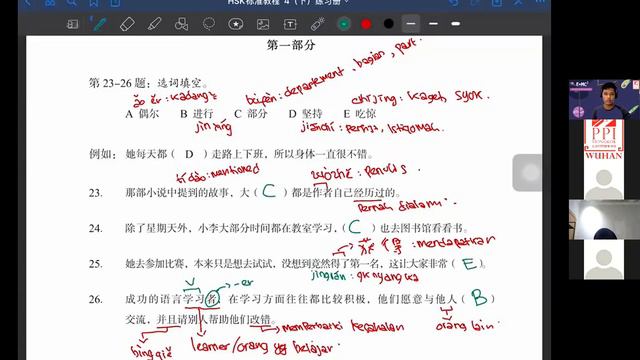 HSK标准教程 4 (下) 练习册
第一部分
第 23-26 题：选词填空。
bùfèn: departement, bagian, part
ǒu ěr: kadang2
A 偶尔 B 进行 C 部分 D 坚持 E 吃惊
chījīng: kaget, syok.
jìnxíng
jiānchí: persis, istiqomah.
例如：她每天都（ D ）走路上下班，所以身体一直很不错。
tídào: mentioned
zuòzhě: Penulis
23. 那部小说中提到的故事，大（ C ）都是作者自己经历过的。
Pernah dialami
24. 除了星期天外，小李大部分时间都在教室学习，（ C ）也去图书馆看看书。
获得: mendapatkan
25. 她去参加比赛，本来只是想去试试，没想到竟然得了第一名，这让大家非常（ E ）。
jìngrán: gk nyangka
v
-er
26. 成功的语言学习者，在学习方面往往都比较积极，他们愿意与他人（ B ）
交流，并且请别人帮助他们改错。
memperbaiki kesalahan
orang lain
bìngqiě
learner/orang yg belajar
E=MC²
PPI
TIONGKOK
WUHAN